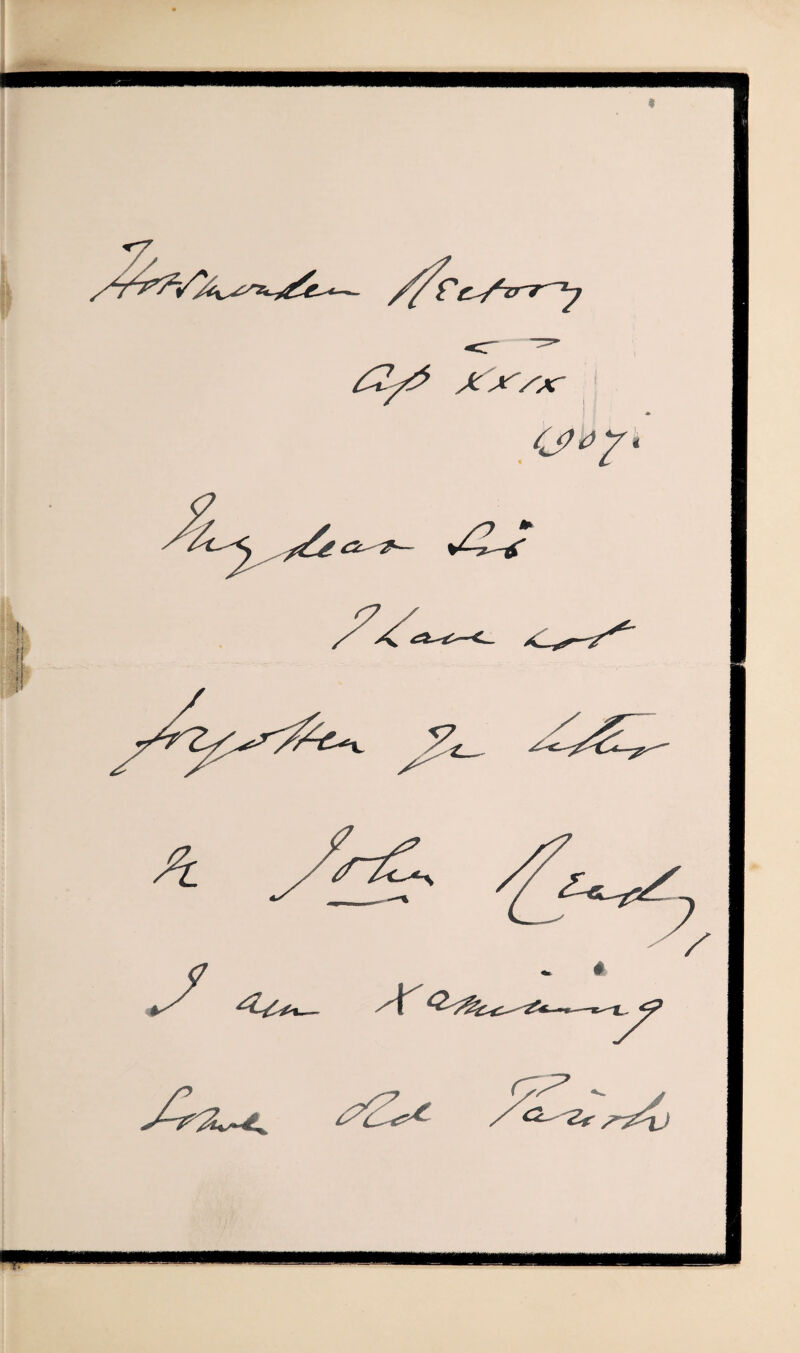 Horsmonden Rectory
Ap XXIX
1907.
My dear Sir
I have not
forgotten yr letter
re John Read,
I am Xamining
some old Parish